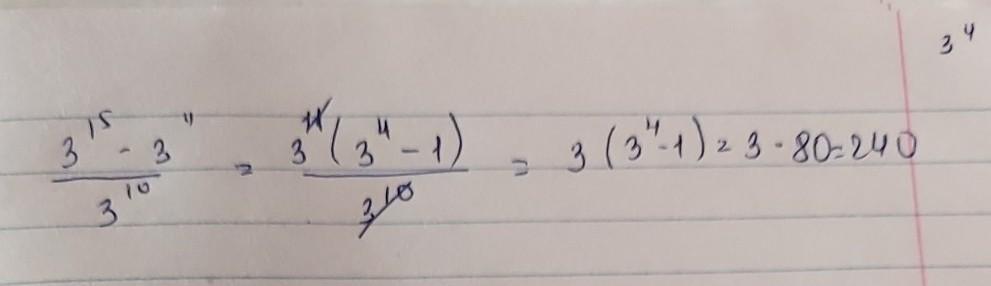 3⁴
(3¹⁵ - 3¹¹)/3¹⁰ = 3¹¹(3⁴ - 1)/3¹⁰ = 3(3⁴ - 1) = 3 · 80 = 240